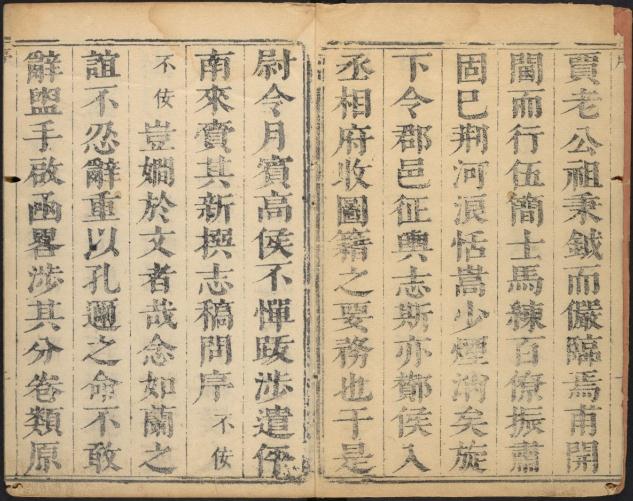 賈老公祖秉鉞而儼臨焉甫開
閫而行伍簡士馬練百僚振肅
固已荆河浪恬嵩少煙消矣旋
下令郡邑征輿志斯亦酇侯入
丞相府收圖籍之要務也于是
尉令月賓高侯不憚跋涉遣伻
南來賫其新撰志稿問序 不佞
不佞 豈嫺於文者哉念如蘭之
誼不忍辭重以孔邇之命不敢
辭盥手啟函畧涉其分卷類原